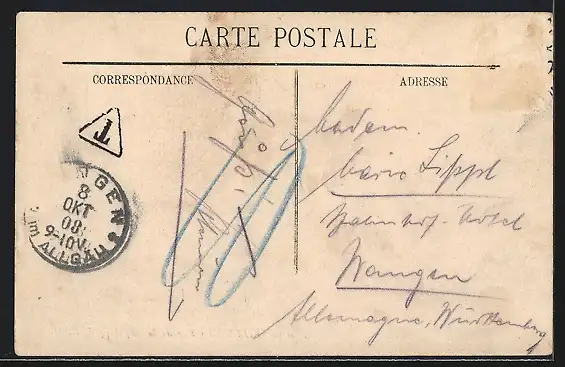 CARTE POSTALE
CORRESPONDANCE
ADRESSE
T
WANGEN
8
OKT
08
9-10V.
im ALLGÄU
Madam
Marie Lippl
Bahnhof-Hotel
Wangen
Allemagne, Württemberg